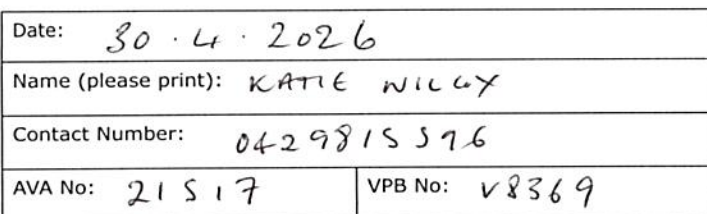 Date: 30.4.2026
Name (please print): KATIE WILCOX
Contact Number: 0429815596
AVA No: 21517 VPB No: V8369